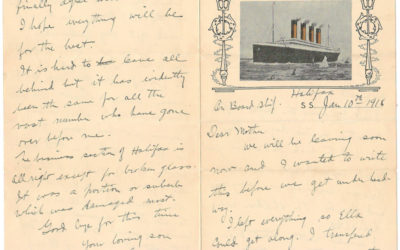 Halifax
On Board Ship. SS Jan 10th 1918
Dear Mother
we will be leaving soon
now and I wanted to write
this before we get under
way.
I left everything so Ella
could get along. I
finally
I hope everything will be
for the best.
It is hard to leave all
behind but it has evidently
been the same for all the
vast number who have gone
over before me.
The business section of Halifax is
all right except for broken glass.
It was a portion or suburb
which was damaged most.
Good bye for this time
Your loving son